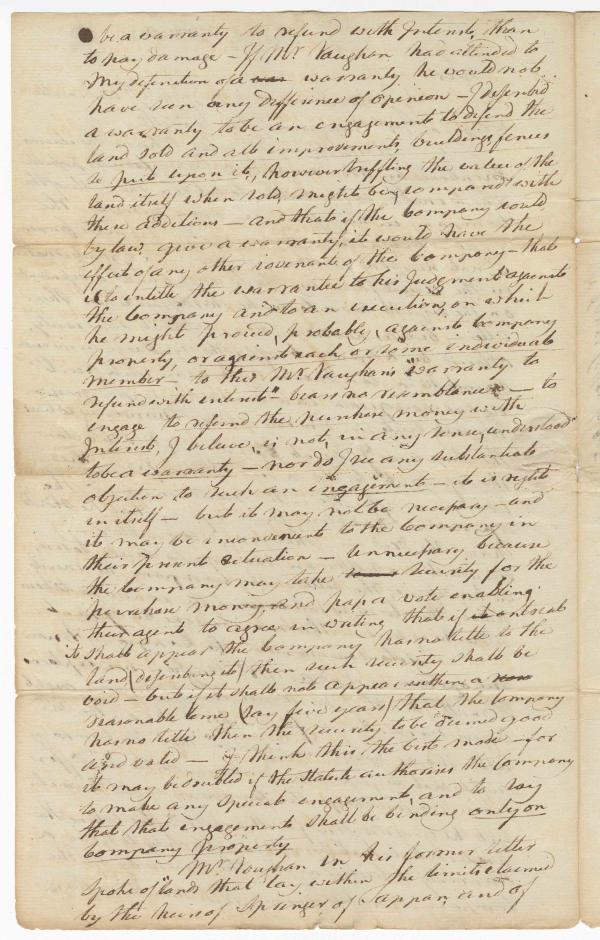 be a warranty to refund with Interest, than
to pay damage - If Mr Vaughan had attended to
My definition of a warranty he would not
have seen any difference of opinion - I described
a warranty to be an engagement to defend the
land sold and all improvements, buildings, fences
&c put upon it, however triffling the value of the
land itself when sold, might be, compared with
these additions - and that if the Company could
by law give a warranty, it would have the
Effect of any other covenant of the Company - that
is to intitle the warrantee to his Judgment against
the Company and to an execution, on which
he might proceed, probably, against Company
property, or against each or some individual
member - to this Mr. Vaughan's "warranty to
refund with interest" bears no resemblance - to
engage to refund the purchase money with
Interest, I believe, is not, in any sense, understood
to be a warranty - nor do I see any substantial
objection to such an engagement - it is right
in itself - but it may not be necessary - and
it may be inconvenient to the Company in
their present situation - unnecessary because
the Company may take security for the
purchase money, and pass a vote enabling
their agent to agree in writing that if on trial
it shall appear the Company has no title to the
land (describing it) then such security shall be
void - but if it shall not appear within a
reasonable time (say five years) that the Company
has no title then the security to be deemed good
and valid - I think this the best mode - for
it may be doubted if the Statute authorises the Company
to make any special engagement, and to say
that that engagement shall be binding only on
Company property
Mr Vaughan in his former letter
spoke of "lands that lay within the limits claimed
by the heirs of Springer of Jappan, and of